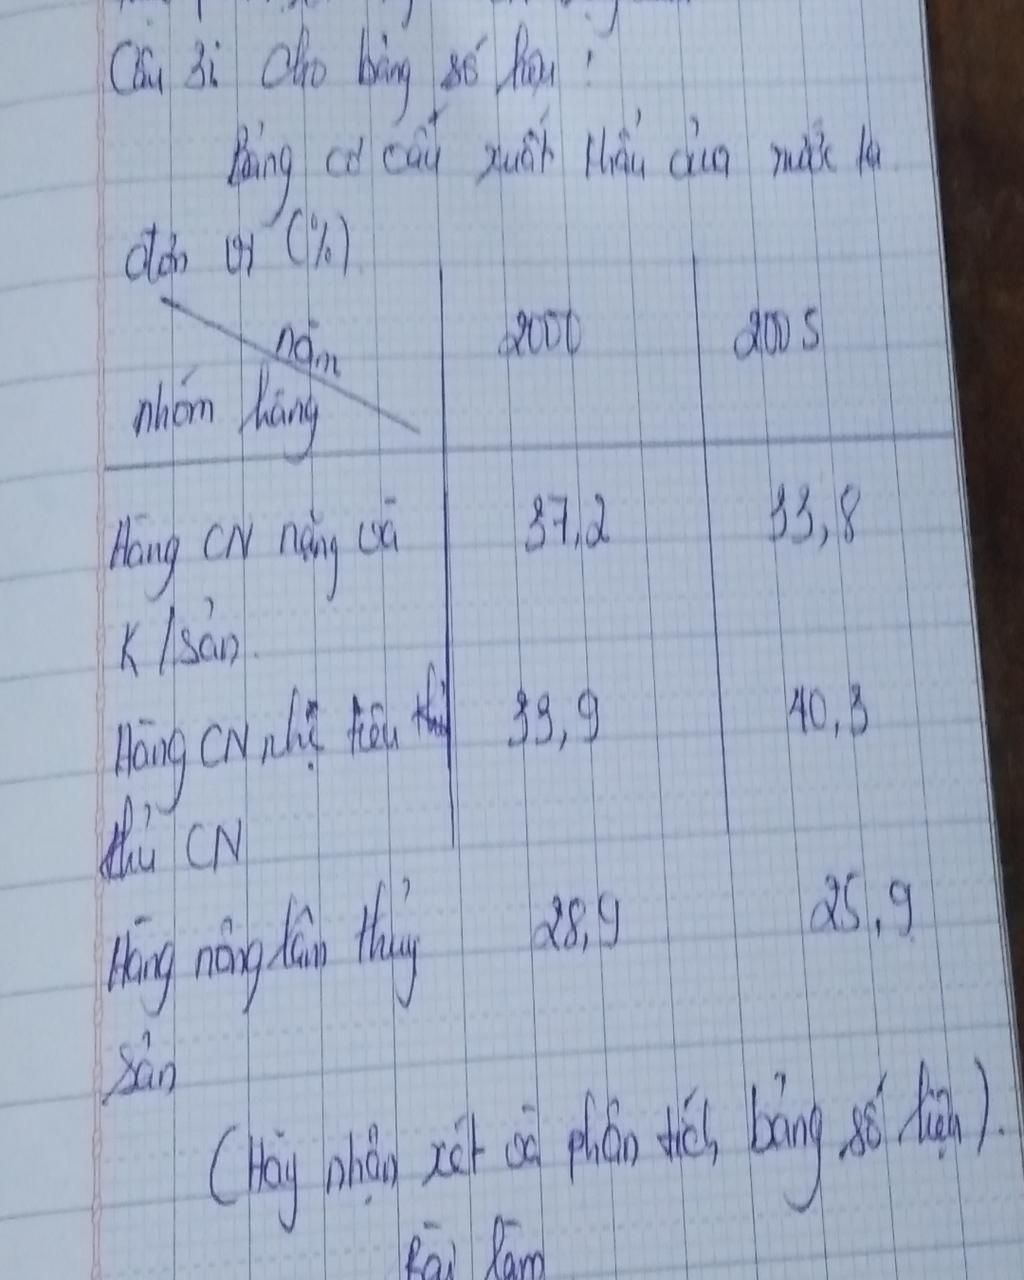 Câu 3: Cho bảng số liệu:
Bảng cơ cấu xuất khẩu của nước ta
đơn vị (%)
năm 2000 2005
nhóm hàng
Hàng CN nặng và 37,2 33,8
K/sản.
Hàng CN nhẹ tiểu 33,9 40,3
thủ CN
Hàng nông lâm thủy 28,9 25,9
sản
(Hãy nhận xét và phân tích bảng số liệu).
Bài làm